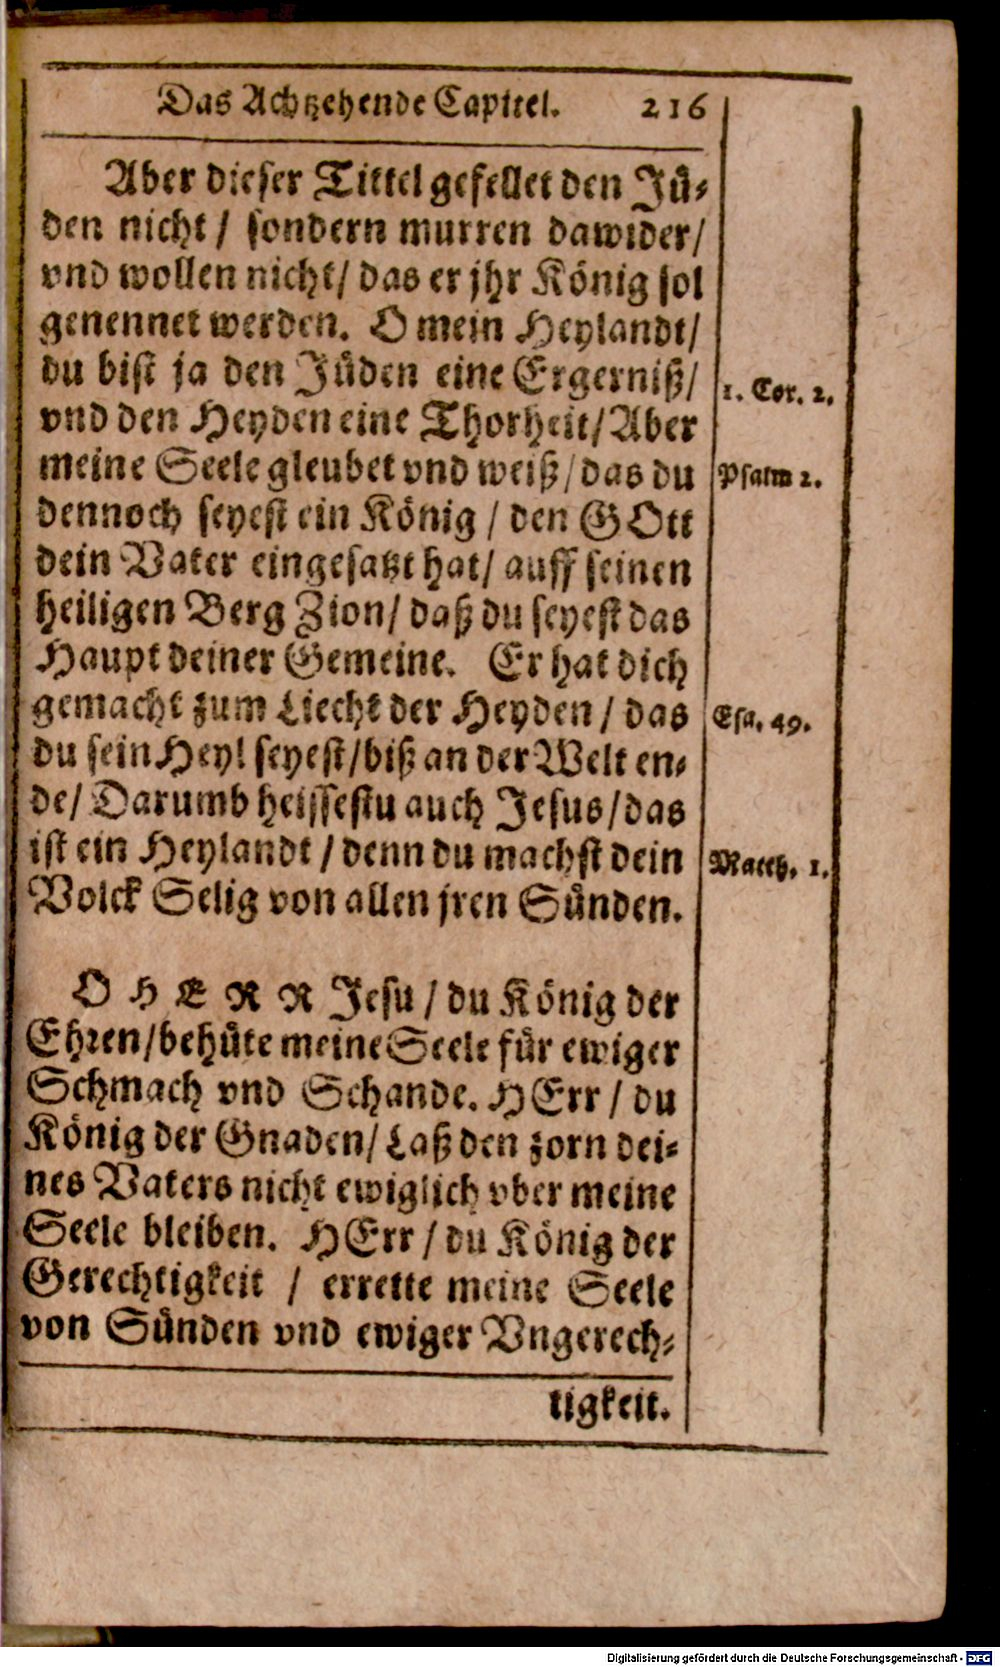 Das Achtzehende Capittel. 216
Aber dieser Tittel gefellet den Jü-
den nicht / sondern murren dawider /
vnd wollen nicht / das er jhr König sol
genennet werden. O mein Heylandt /
du bist ja den Jüden eine Ergerniß /
1. Cor. 2.
vnd den Heyden eine Thorheit / Aber
meine Seele gleubet vnd weiß / das du
Psalm 2.
dennoch seyest ein König / den GOtt
dein Vater eingesatzt hat / auff seinen
heiligen Berg Zion / daß du seyest das
Haupt deiner Gemeine. Er hat dich
gemacht zum Liecht der Heyden / das
Esa. 49.
du sein Heyl seyest / biß an der Welt en-
de / Darumb heissestu auch Jesus / das
ist ein Heylandt / denn du machst dein
Matth. 1.
Volck Selig von allen jren Sünden.
O HERR Jesu / du König der
Ehren / behüte meine Seele für ewiger
Schmach vnd Schande. HErr / du
König der Gnaden / Laß den zorn dei-
nes Vaters nicht ewiglich vber meine
Seele bleiben. HErr / du König der
Gerechtigkeit / errette meine Seele
von Sünden vnd ewiger Vngerech-
tigkeit.
Digitalisierung gefördert durch die Deutsche Forschungsgemeinschaft - DFG